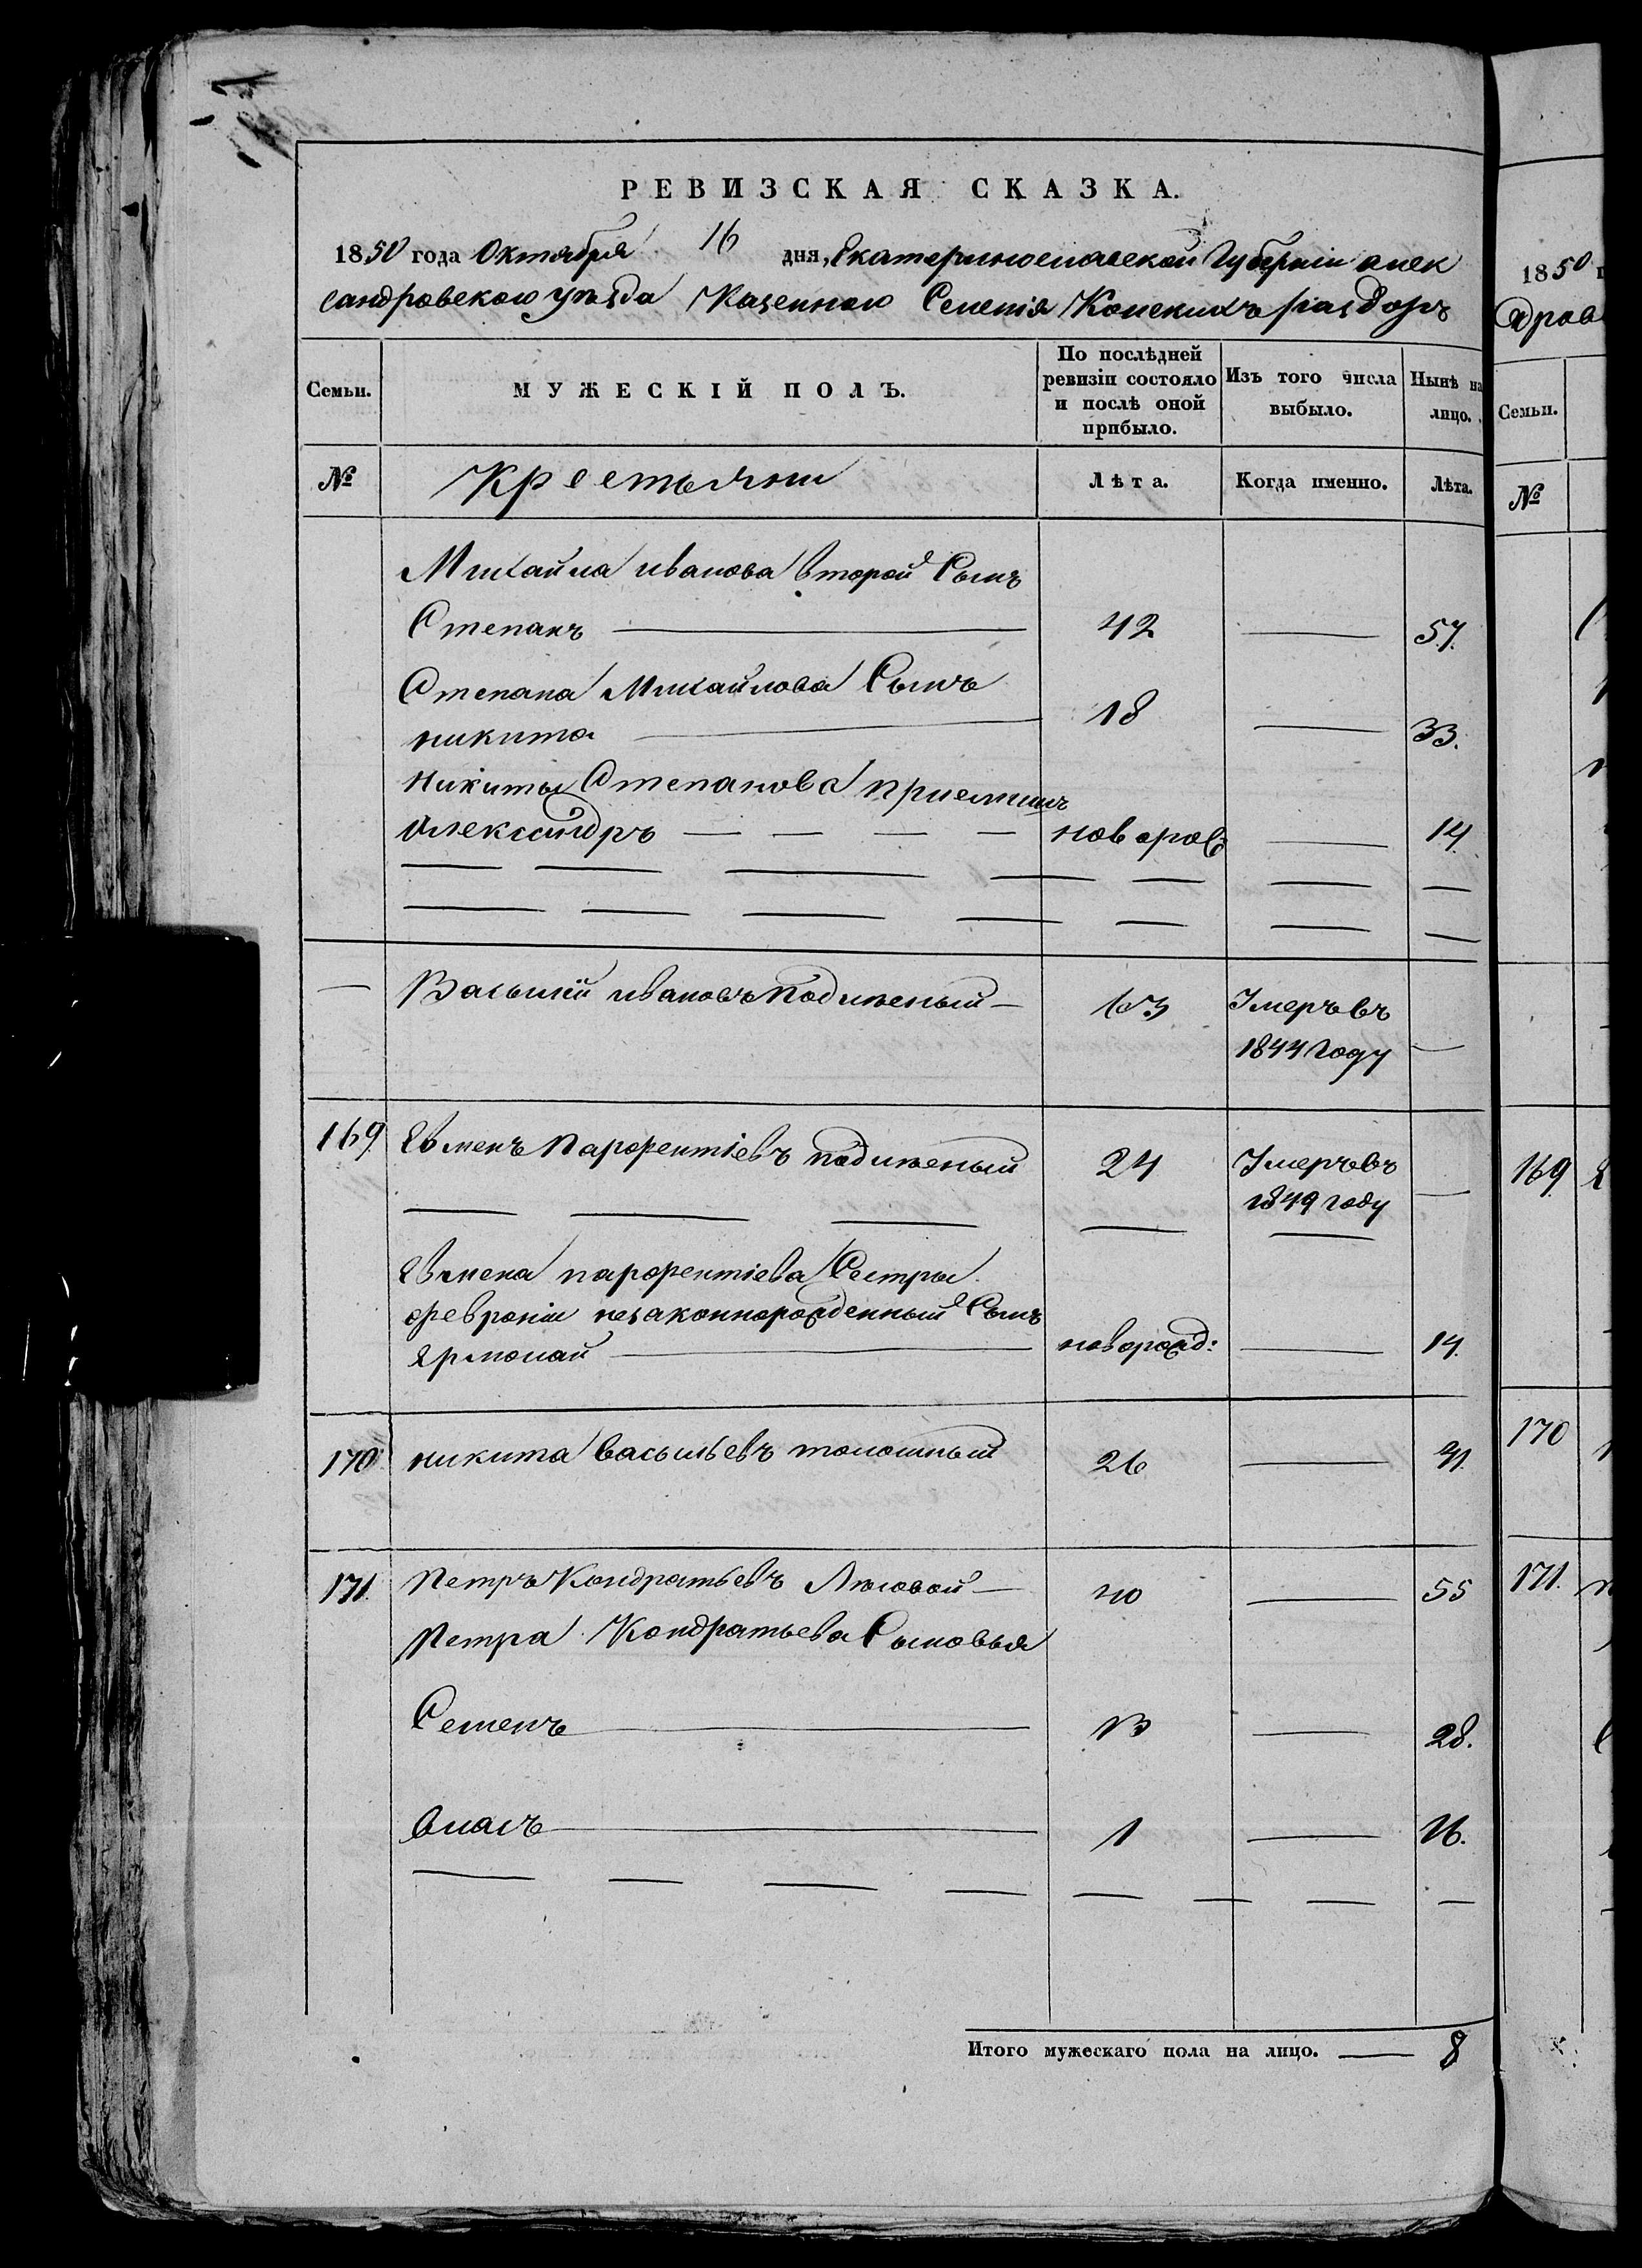 РЕВИЗСКАЯ СКАЗКА.
1850 года Октября 16 дня, Екатеринославской Губерніи алек
сандровского уѣзда Казенного Селенія Конскихъ раздоръ
Семьи. МУЖЕСКІЙ ПОЛЪ. По послѣдней ревизіи состояло и послѣ оной прибыло. Изъ того числа выбыло. Нынѣ на лицо.
№ Крестьяни Лѣта. Когда именно. Лѣта.
Михайла иванова второй Сынъ
Степанъ 42 57.
Степана Михайлова Сынъ
никита 18 33.
Никиты Степанова приемишъ
Александръ новорожд 14.
Васылій ивановъ подлѣсный 63 Умеръ въ
1844 году
169. Евменъ Парфентіевъ подлѣсный 24 Умеръ въ
1849 году
Евмена парфентіева Сестры
февроніи незаконнорожденный Сынъ
Ярмолай новорожд: 14.
170. никита васыльевъ толошный 26 41.
171. Петръ Кондратьевъ Лѣсовой 40 55
Петра Кондратьева Сыновья
Семенъ 13 28.
власъ 1 16.
Итого мужескаго пола на лицо. 8
1850 г
дров
Семьи.
№
169
170
171.